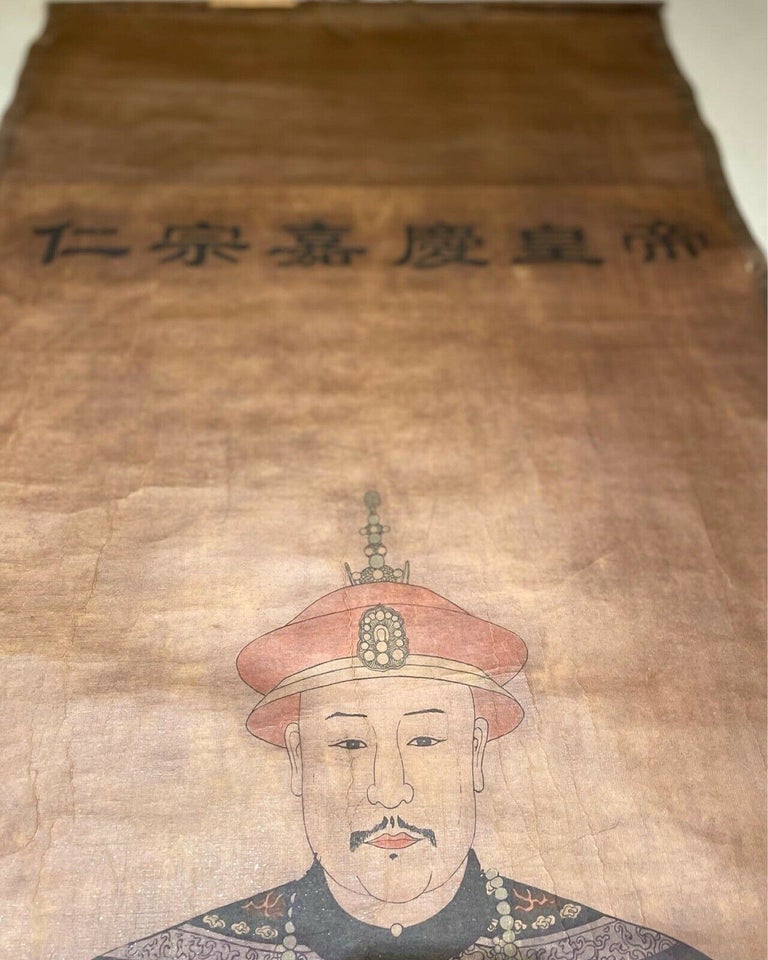 仁宗嘉慶皇帝